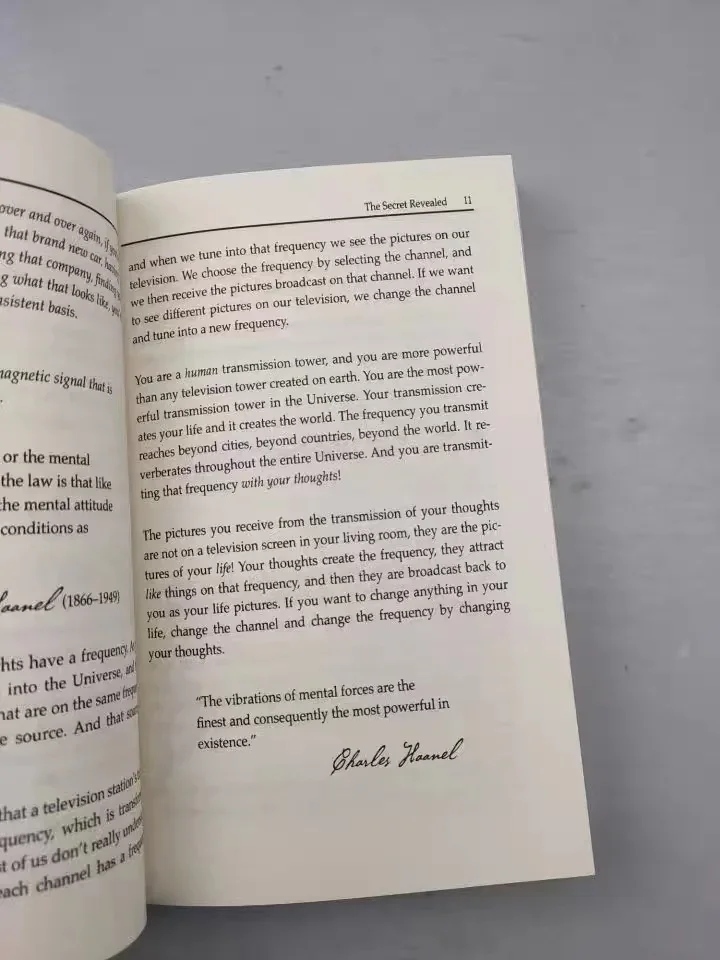 over and over again, if
that brand new car,
ng that company, finding
g what that looks like,
sistent basis.
magnetic signal that is
.
or the mental
the law is that like
the mental attitude
conditions as
Haanel (1866–1949)
hts have a frequency.
into the Universe, and
hat are on the same
e source. And that
that a television station's
quency, which is
t of us don't really
each channel has a
The Secret Revealed 11
and when we tune into that frequency we see the pictures on our
television. We choose the frequency by selecting the channel, and
we then receive the pictures broadcast on that channel. If we want
to see different pictures on our television, we change the channel
and tune into a new frequency.
You are a human transmission tower, and you are more powerful
than any television tower created on earth. You are the most pow-
erful transmission tower in the Universe. Your transmission cre-
ates your life and it creates the world. The frequency you transmit
reaches beyond cities, beyond countries, beyond the world. It re-
verberates throughout the entire Universe. And you are transmit-
ting that frequency with your thoughts!
The pictures you receive from the transmission of your thoughts
are not on a television screen in your living room, they are the pic-
tures of your life! Your thoughts create the frequency, they attract
like things on that frequency, and then they are broadcast back to
you as your life pictures. If you want to change anything in your
life, change the channel and change the frequency by changing
your thoughts.
"The vibrations of mental forces are the
finest and consequently the most powerful in
existence."
Charles Haanel